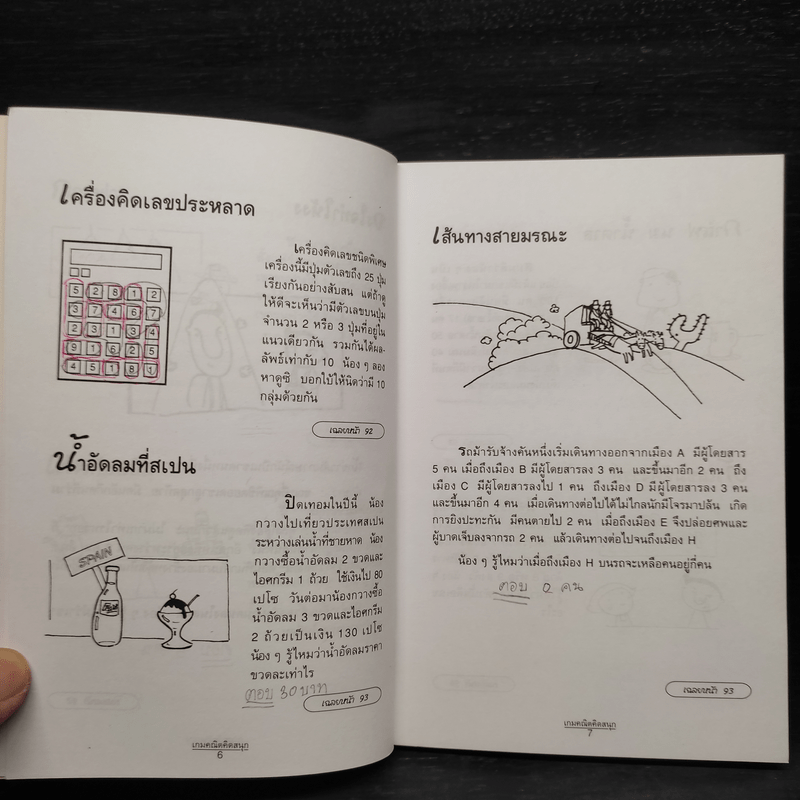 เครื่องคิดเลขประหลาด
5 2 8 1 2
3 7 4 6 7
2 3 1 3 4
9 1 6 2 5
4 5 1 8 1
เครื่องคิดเลขชนิดพิเศษ
เครื่องนี้มีปุ่มตัวเลขถึง 25 ปุ่ม
เรียงกันอย่างสับสน แต่ถ้าดู
ให้ดีจะเห็นว่ามีตัวเลขบนปุ่ม
จำนวน 2 หรือ 3 ปุ่มที่อยู่ใน
แนวเดียวกัน รวมกันได้ผล-
ลัพธ์เท่ากับ 10 น้อง ๆ ลอง
หาดูซิ บอกใบ้ให้นิดว่ามี 10
กลุ่มด้วยกัน
เฉลยหน้า 92
น้ำอัดลมที่สเปน
SPAIN
ปิดเทอมในปีนี้ น้อง
กวางไปเที่ยวประเทศสเปน
ระหว่างเล่นน้ำที่ชายหาด น้อง
กวางซื้อน้ำอัดลม 2 ขวดและ
ไอศกรีม 1 ถ้วย ใช้เงินไป 80
เปโซ วันต่อมาน้องกวางซื้อ
น้ำอัดลม 3 ขวดและไอศกรีม
2 ถ้วยเป็นเงิน 130 เปโซ
น้อง ๆ รู้ไหมว่าน้ำอัดลมราคา
ขวดละเท่าไร
ตอบ 30 บาท
เฉลยหน้า 93
เกมคณิตคิดสนุก
6
เส้นทางสายมรณะ
รถม้ารับจ้างคันหนึ่งเริ่มเดินทางออกจากเมือง A มีผู้โดยสาร
5 คน เมื่อถึงเมือง B มีผู้โดยสารลง 3 คน และขึ้นมาอีก 2 คน ถึง
เมือง C มีผู้โดยสารลงไป 1 คน ถึงเมือง D มีผู้โดยสารลง 3 คน
และขึ้นมาอีก 4 คน เมื่อเดินทางต่อไปได้ไม่ไกลนักมีโจรมาปล้น เกิด
การยิงปะทะกัน มีคนตายไป 2 คน เมื่อถึงเมือง E จึงปล่อยศพและ
ผู้บาดเจ็บลงจากรถ 2 คน แล้วเดินทางต่อไปจนถึงเมือง H
น้อง ๆ รู้ไหมว่าเมื่อถึงเมือง H บนรถจะเหลือคนอยู่กี่คน
ตอบ 0 คน
เฉลยหน้า 93
เกมคณิตคิดสนุก
7